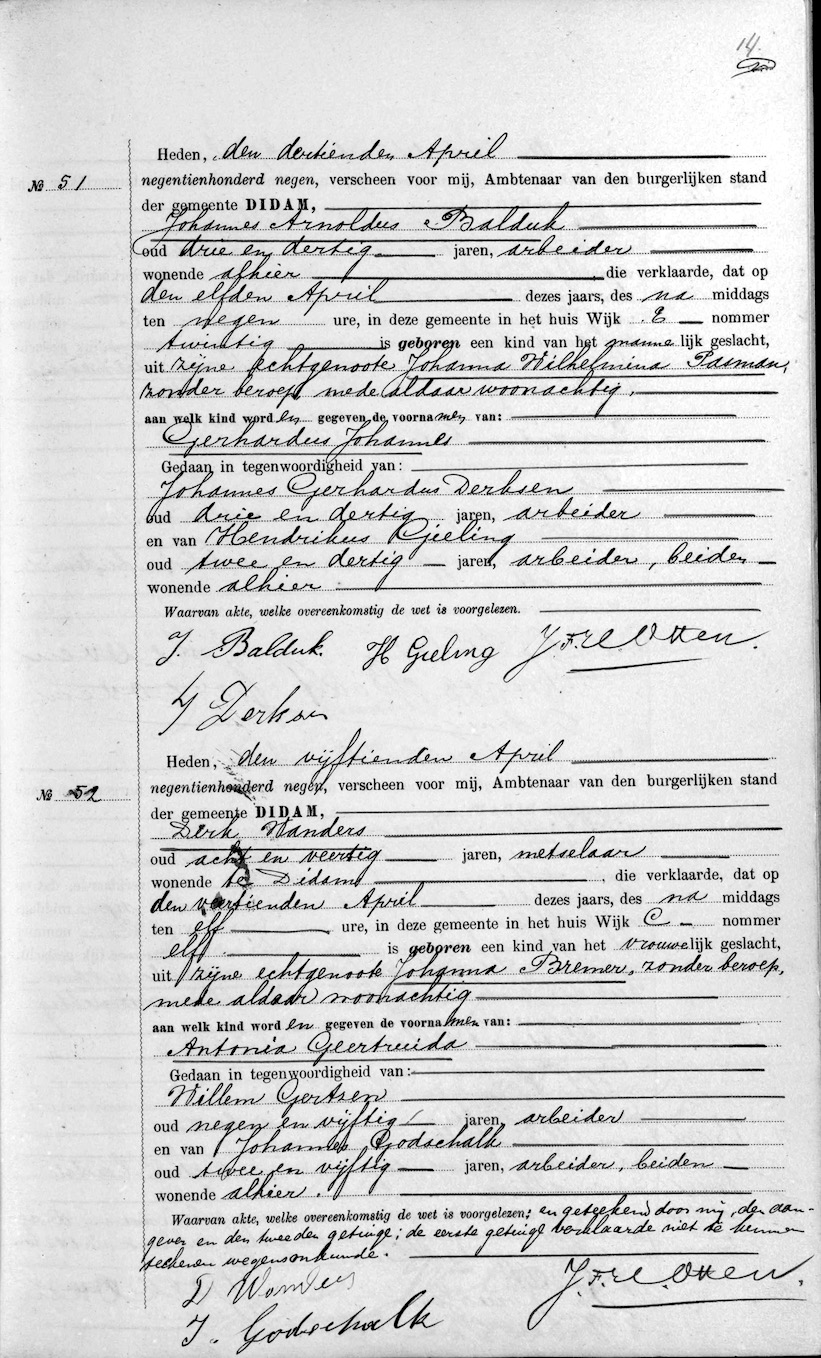 14.
Heden, den dertienden April
№ 51
negentienhonderd negen, verscheen voor mij, Ambtenaar van den burgerlijken stand
der gemeente DIDAM,
Johannes Arnoldus Balduk
oud drie en dertig jaren, arbeider
wonende alhier , die verklaarde, dat op
den elfden April dezes jaars, des na middags
ten negen ure, in deze gemeente in het huis Wijk E nommer
twintig is geboren een kind van het manne lijk geslacht,
uit zijne echtgenoote Johanna Wilhelmina Pasman,
zonder beroep, mede aldaar woonachtig,
aan welk kind word en gegeven de voorna men van:
Gerhardus Johannes
Gedaan in tegenwoordigheid van:
Johannes Gerhardus Derksen
oud drie en dertig jaren, arbeider
en van Hendrikus Gieling
oud twee en dertig jaren, arbeider, beiden
wonende alhier
Waarvan akte, welke overeenkomstig de wet is voorgelezen.
J. Balduk. H Gieling J.F.H.C. Otten.
Derksen
Heden, den vijftienden April
№ 52
negentienhonderd negen, verscheen voor mij, Ambtenaar van den burgerlijken stand
der gemeente DIDAM,
Derk Wanders
oud acht en veertig jaren, metselaar
wonende te Didam , die verklaarde, dat op
den veertienden April dezes jaars, des na middags
ten elf ure, in deze gemeente in het huis Wijk C nommer
elf is geboren een kind van het vrouwelijk geslacht,
uit zijne echtgenoote Johanna Bremer, zonder beroep,
mede aldaar woonachtig
aan welk kind word en gegeven de voorna men van:
Antonia Geertruida
Gedaan in tegenwoordigheid van:
Willem Gertsen
oud negen en vijftig jaren, arbeider
en van Johannes Godschalk
oud twee en vijftig jaren, arbeider, beiden
wonende alhier.
Waarvan akte, welke overeenkomstig de wet is voorgelezen; en geteekend door mij, den aan-
gever en den tweeden getuige; de eerste getuige verklaarde niet te kunnen
teekenen wegens onkunde.
D Wanders J.F.H.C. Otten.
J. Godschalk